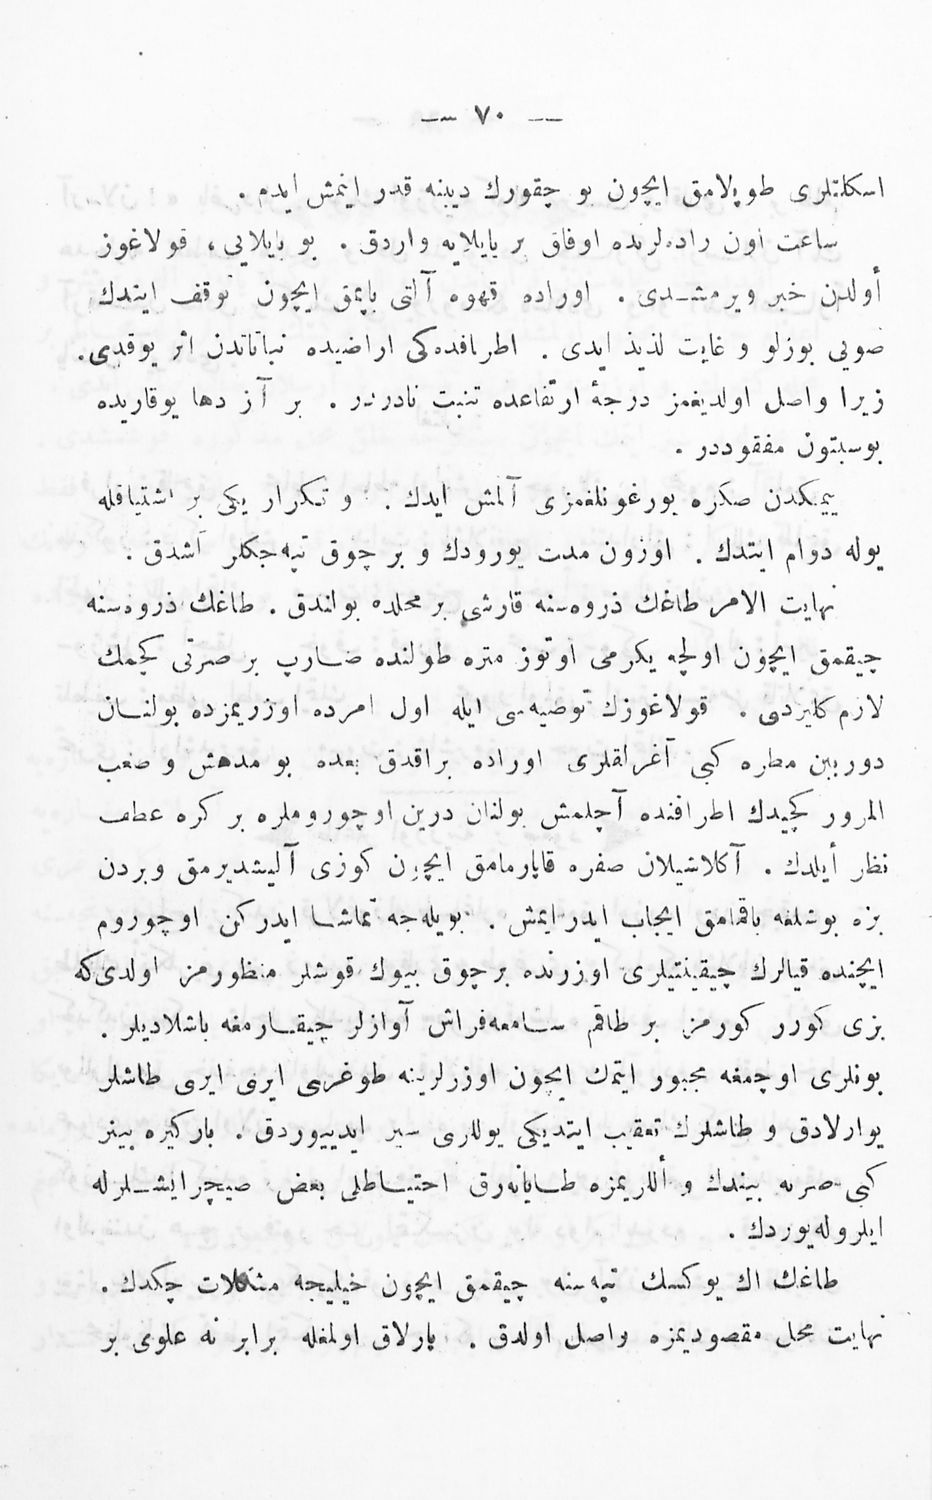 — ٧٠ —
اسكلتلری طوپلامق ایچون بو چقورك دیبنه قدر اینمش ایدم .
ساعت اون راده‌لرنده اوفاق بر یایلایه واردق . بو یایلایی ، قولاغوز
أولدن خبر ویرمشدی . اوراده قهوه آلتی یاپمق ایچون توقف ایتدك
صویی بوزلو و غایت لذیذ ایدی . اطرافده‌كی اراضیده نباتاتدن اثر یوقدی.
زیرا واصل اولدیغمز درجۀ ارتفاعده تنبت نادردر . بر آز دها یوقاریده
بوسبتون مفقوددر .
ییمكدن صكره یورغونلغمزی آلمش ایدك . و تكرار یكی بر اشتیاقله
یوله دوام ایتدك . اوزون مدت یورودك و بر چوق تپه‌جكلر آشدق .
نهایت الامر طاغك ذروه‌سنه قارشی بر محلده بولندق . طاغك ذروه‌سنه
چیقمق ایچون اولجه یكرمی اوتوز متره طولنده صارپ بر صرتی كچمك
لازم كلیردی . قولاغوزك توصیه‌سی ایله اول امرده اوزریمزده بولنان
دوربین مطره كبی آغرلقلری اوراده براقدق بعده بو مدهش و صعب
المرور كچیدك اطرافنده آچلمش بولنان درین اوچوروملره بر كره عطف
نظر أیلدك . آكلاشیلان صفره قابارمامق ایچون كوزی آلیشدیرمق وبردن
بزه بوشلغه باقمامق ایجاب ایدرایمش . بویله‌جه تماشا ایدركن اوچوروم
ایچنده قیالرك چیقینتیلری اوزرنده برچوق بیوك قوشلر منظورمز اولدی‌كه
بزی كورر كورمز بر طاقم سامعه‌فراش آوازلر چیقارمغه باشلادیلر .
بونلری اوچمغه مجبور ایتمك ایچون اوزرلرینه طوغری ایری ایری طاشلر
یوارلادق و طاشلرك تعقیب ایتدیكی یوللری سیر ایدییوردق . باركیره بینر
كبی صرته بیندك و أللریمزه طایانه‌رق احتیاطلی بعض صیچرایشلرله
ایلروله‌یوردك .
طاغك اك یوكسك تپه‌سنه چیقمق ایچون خیلیجه مشكلات چكدك .
نهایت محل مقصودیمزه واصل اولدق . پارلاق اولمغله برابر نه علوی بر